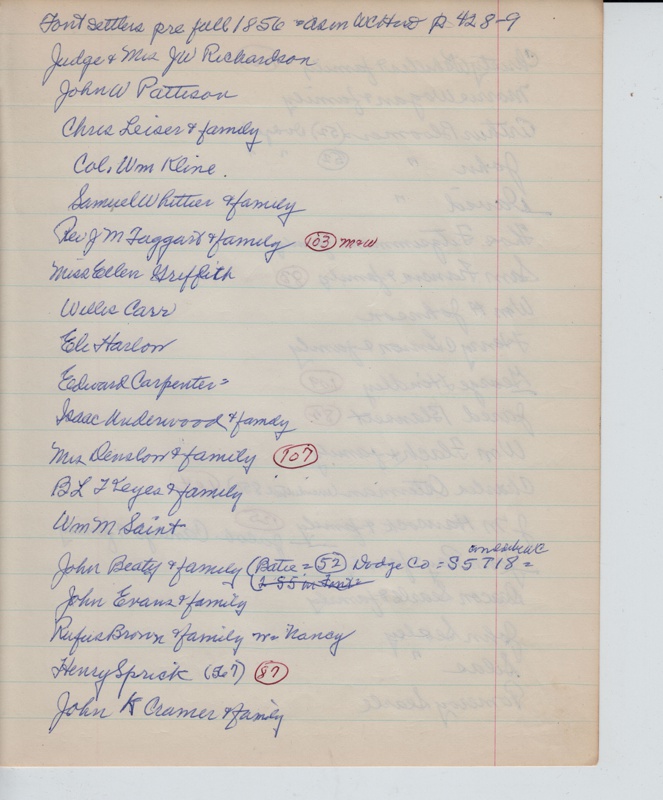 Font settlers pre fall 1856 = as in WC Hist p. 428-9
Judge & Mrs JW Richardson
John W Pattison
Chris Leiser & family
Col. Wm Kline.
Samuel Whittier & family
Rev J M Taggart & family (103) M&W
Miss Ellen Griffith
Willis Carr
Eli Harlow
Edward Carpenter =
Isaac Underwood & family
Mrs Denslow & family (107)
B L F Keyes & family
Wm M Saint
John Beaty & family (Batie = (52) Dodge Co = S5 T18 =
John Evans & family
Rufus Brown & family w = Nancy
Henry Sprick (Fo7) (87)
John K Cramer & family